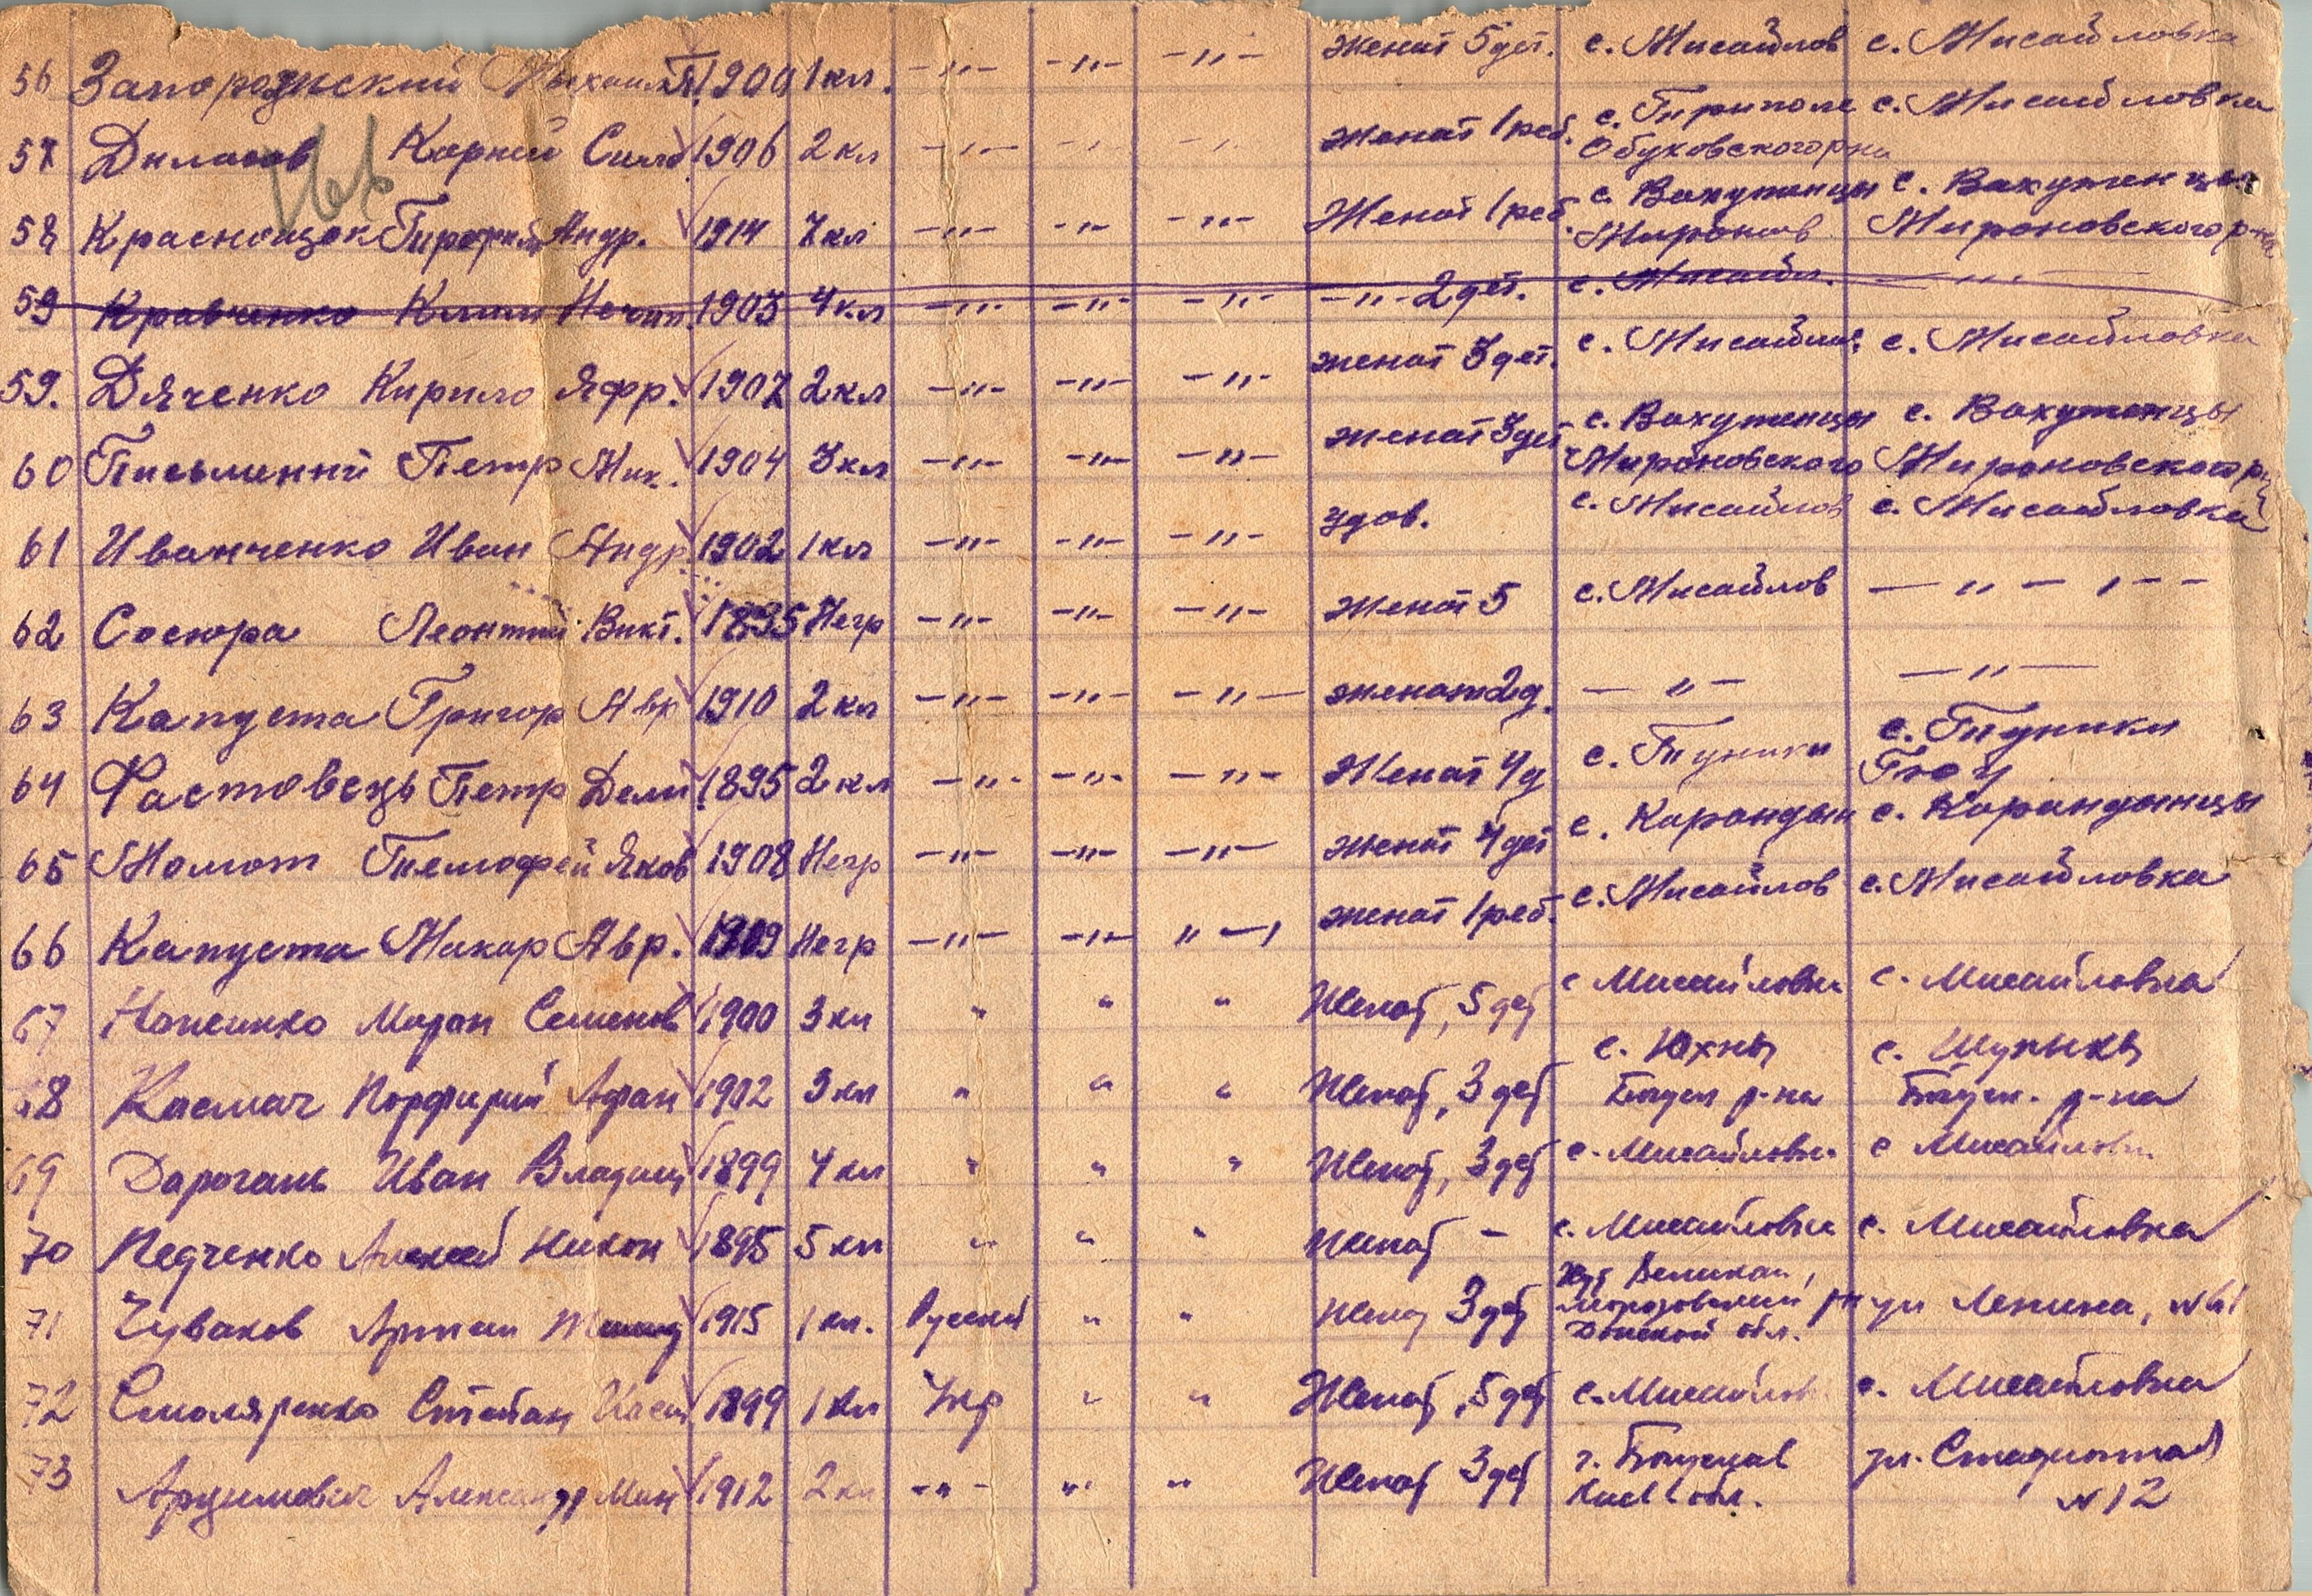 56 Запорожский Михаил П. 1900 1 кл. -"- -"- -"- женат 5 дет. с. Мисайлов с. Мисайловка
57 Дилигов Корней Силов. 1906 2 кл -"- -"- -"- женат 1 реб. с. Триполе Обуховского рна с. Мисайловка
58 Андр. 1914 7 кл -"- -"- -"- Женат 1 реб. с. Вахутинцы Миронов с. Вахутинцы Мироновского р-на
59 Кравченко Клим Нечип. 1903 4 кл -"- -"- -"- -"- 2 дет. с. Мисайл. -"-
59. Дяченко Кирило Яфр. 1907 2 кл -"- -"- -"- женат 3 дет. с. Мисайлов. с. Мисайловка
60 Письменни Петр Мик. 1904 3 кл -"- -"- -"- женат 3 дет с. Вахутинцы Мироновского с. Вахутинцы Мироновского р
61 Иванченко Иван Андр. 1902 1 кл -"- -"- -"- удов. с. Мисайлов с. Мисайловка
62 Сосюра Леонтий Викт. 1895 Негр -"- -"- -"- женат 5 с. Мисайлов -"-
63 Капуста Григор Авр 1910 2 кл -"- -"- -"- женат 2 д. -"- -"-
64 Фастовець Петр Дем. 1895 2 кл -"- -"- -"- Женат 4 д с. Туники с. Туники
65 Момот Тимофей Яков 1908 Негр -"- -"- -"- женат 4 дет с. Карандын с. Карандинцы
66 Капуста Макар Авр. 1909 Негр -"- -"- "-" женат 1 реб. с. Мисайлов с. Мисайловка
67 Миран Семенов 1900 3 кл " " " Женат, 5 дет с Мисайловка с. Мисайловка
68 Касмач Порфирий Афан 1902 3 кл " " " Женат, 3 дет с. Юхны Богусл р-на с. Шупыкы Богусл. р-на
69 Дорогань Иван Владим 1899 4 кл " " " Женат, 3 дет с. Мисайловка с Мисайловка
70 Педченко Алексей Никон 1895 5 кл " " " женат - с. Мисайловка с. Мисайловка
71 Чуваков 1915 1 кл. Русский " " женат 3 дет хут Великан, Морозовский рн Донской обл. ул Ленина, №61
72 Смоляренко Степан 1899 1 кл Укр " " Женат, 5 дет с. Мисайлов с. Мисайловка
73 Ардимович Александр Мин 1912 2 кл -"- " " Женат 3 дет г. Богуслав Киев обл. ул. Стадионная №12